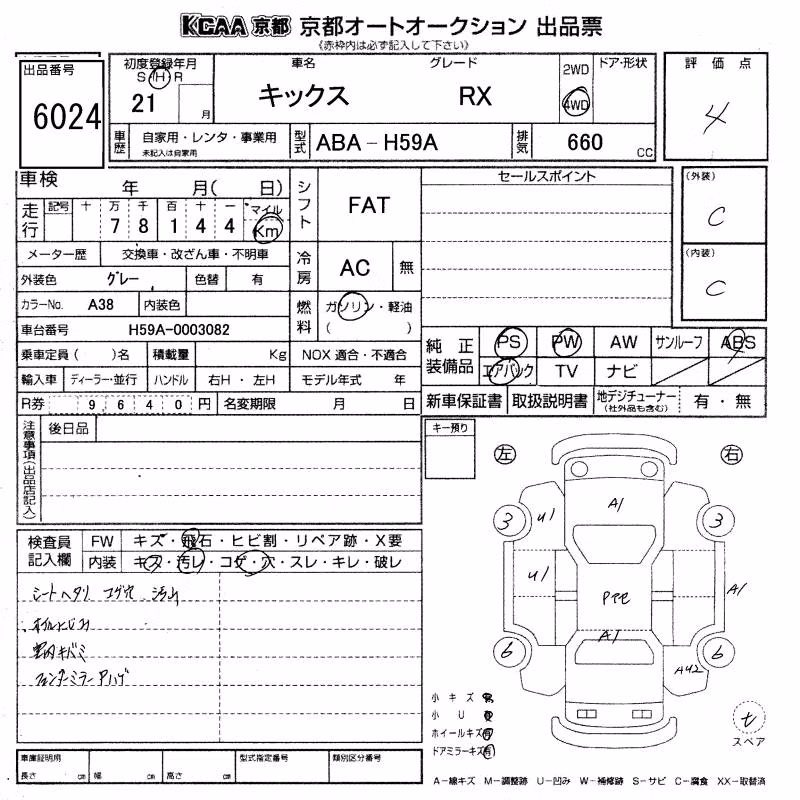 KCAA 京都 京都オートオークション 出品票
《赤枠内は必ず記入して下さい》
出品番号
6024
初度登録年月
S H R
21 月
車名
キックス
グレード
RX
2WD
4WD
ドア・形状
評価点
4
車歴
自家用・レンタ・事業用
未記入は自家用
型式
ABA-H59A
排気
660
cc
車検 年 月( 日)
走行
記号 十 万 千 百 十 一 マイル
7 8 1 4 4 Km
シフト
FAT
セールスポイント
(外装)
C
(内装)
C
メーター歴 交換車・改ざん車・不明車
外装色 グレー 色替 有
冷房
AC 無
カラーNo. A38 内装色
燃料
ガソリン・軽油
( )
車台番号 H59A-0003082
乗車定員( )名 積載量 Kg NOX 適合・不適合
輸入車 ディーラー・並行 ハンドル 右H・左H モデル年式 年
R券 9 6 4 0 円 名変期限 月 日
純正装備品
PS PW AW サンルーフ ABS
エアバック TV ナビ
新車保証書 取扱説明書 地デジチューナー
(社外品も含む)
有・無
注意事項(出品店記入)
後日品
キー預り
左 右
検査員記入欄
FW キズ・飛石・ヒビ割・リペア跡・X要
内装 キズ・汚レ・コゲ・穴・スレ・キレ・破レ
シートヘタリ コゲ穴 汚れ
オイルにじみ
室内キバミ
フェンダーミラーアハゲ
3 U1 A1 3
U1 A1
Pマモ
A1
6 A42 6
小キズ 有
小U 有
ホイールキズ 有
ドアミラーキズ 有
t
スペア
車庫証明用 型式指定番号 類別区分番号
長さ cm 幅 cm 高さ cm
A-線キズ M-調整跡 U-凹み W-補修跡 S-サビ C-腐食 XX-取替済